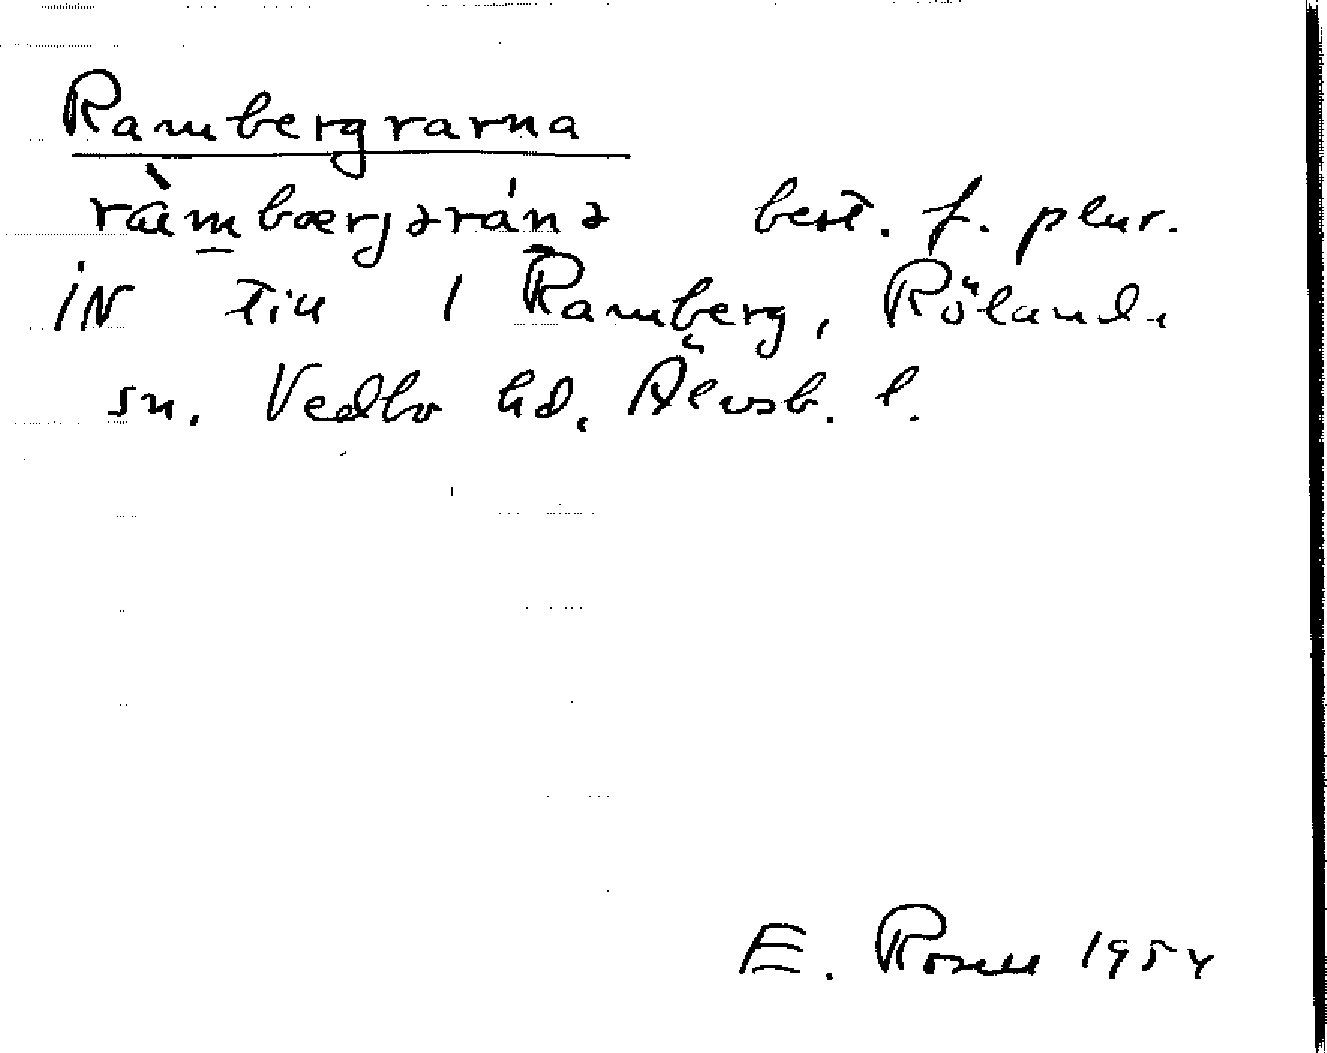 Rambergrarna
ràmbærjəránə best. f. plur.
IN till 1 Ramberg, Rölanda
sn. Vedbo hd. Älvsb. l.
E. Rosell 1954